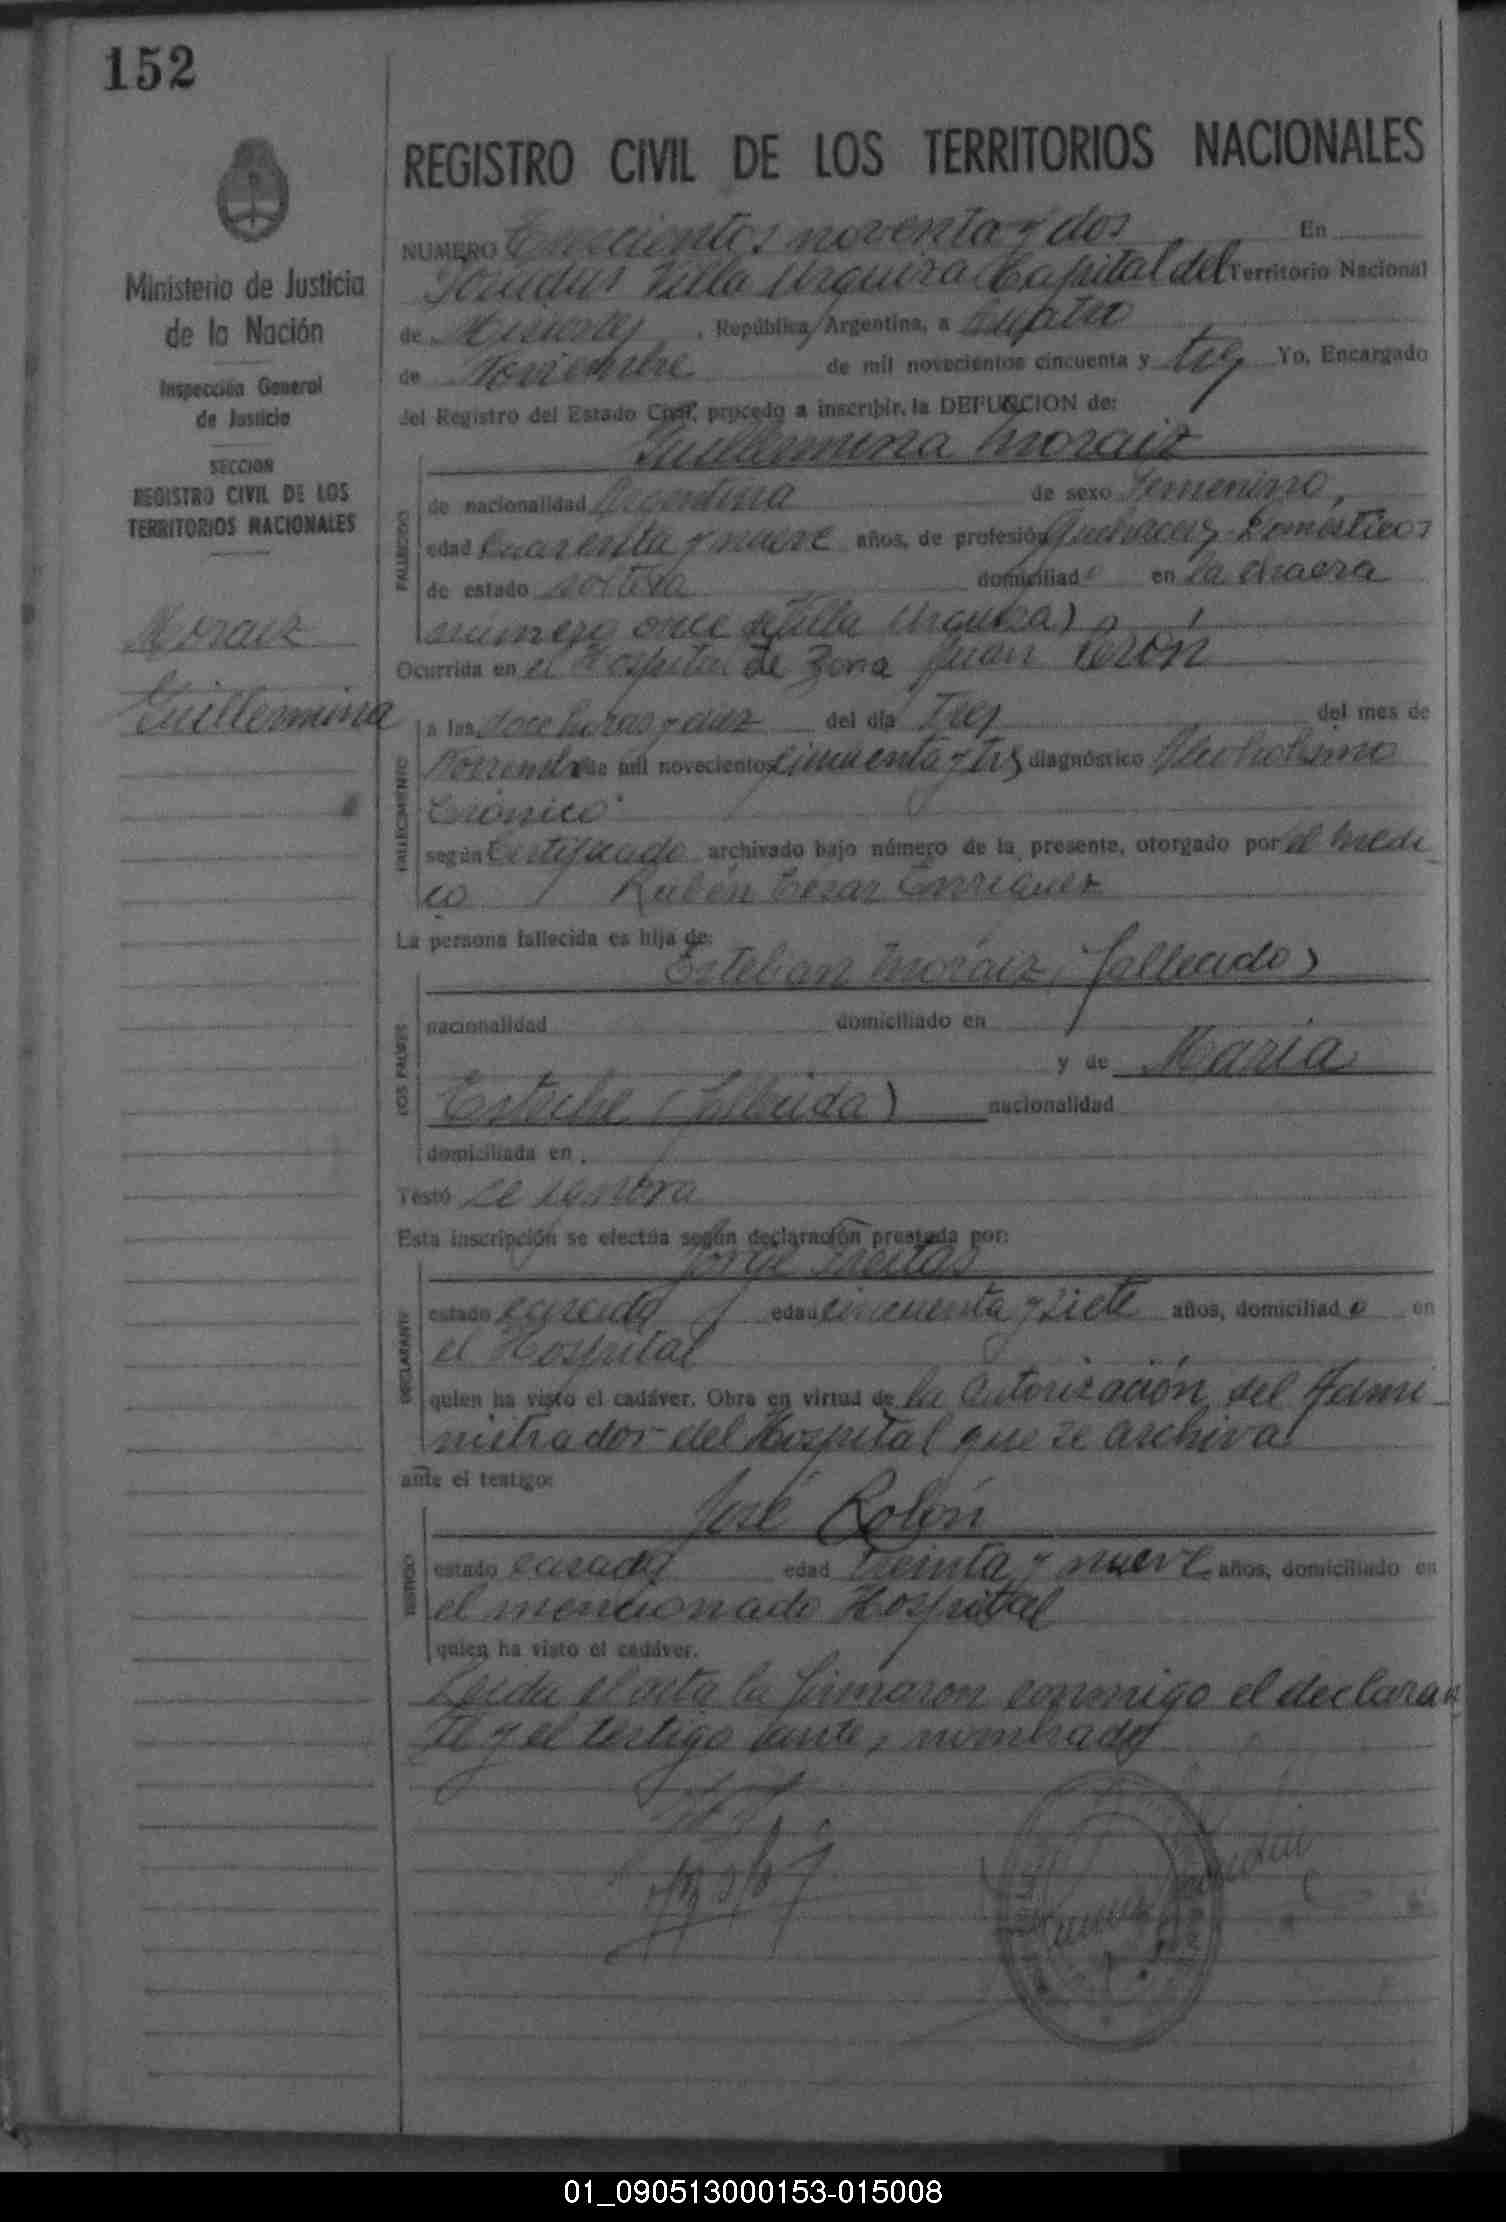 152
REGISTRO CIVIL DE LOS TERRITORIOS NACIONALES
Ministerio de Justicia
de la Nación
Inspección General
de Justicia
SECCION
REGISTRO CIVIL DE LOS
TERRITORIOS NACIONALES
Moraiz
Guillermina
NUMERO noventa y dos En
Posadas Villa Urquiza Capital del Territorio Nacional
de Misiones, República Argentina, a Cuatro
de Noviembre de mil novecientos cincuenta y tres Yo, Encargado
del Registro del Estado Civil, procedo a inscribir, la DEFUNCION de:
Guillermina Moraiz
FALLECIDO
de nacionalidad Argentina de sexo Femenino,
edad Cuarenta y nueve años, de profesión Quehaceres Domésticos
de estado soltera domiciliado en la chacra
número once de Villa Urquiza)
Ocurrida en el Hospital de Zona Juan Perón
FALLECIMIENTO
a las doce horas y diez del día Tres del mes de
Noviembre de mil novecientos cincuenta y tres diagnóstico Alcoholismo
Crónico
según Certificado archivado bajo número de la presente, otorgado por el médi
co Rubén Cesar Enriquez
La persona fallecida es hija de:
Esteban Moraiz, fallecido)
LOS PADRES
nacionalidad domiciliado en
y de María
(fallecida) nacionalidad
domiciliada en
Testó se ignora
Esta inscripción se efectúa según declaración prestada por:
Jorge Freitas
DECLARANTE
estado casado edad cincuenta y siete años, domiciliado en
el Hospital
quien ha visto el cadáver. Obra en virtud de la Autorización del Admi
nistrador del Hospital que se archiva
ante el testigo:
José Rolón
TESTIGO
estado casado edad treinta y nueve años, domiciliado en
el mencionado Hospital
quien ha visto el cadáver.
Leída el acta la firmaron conmigo el declaran
te y el testigo antes nombrado
01_090513000153-015008